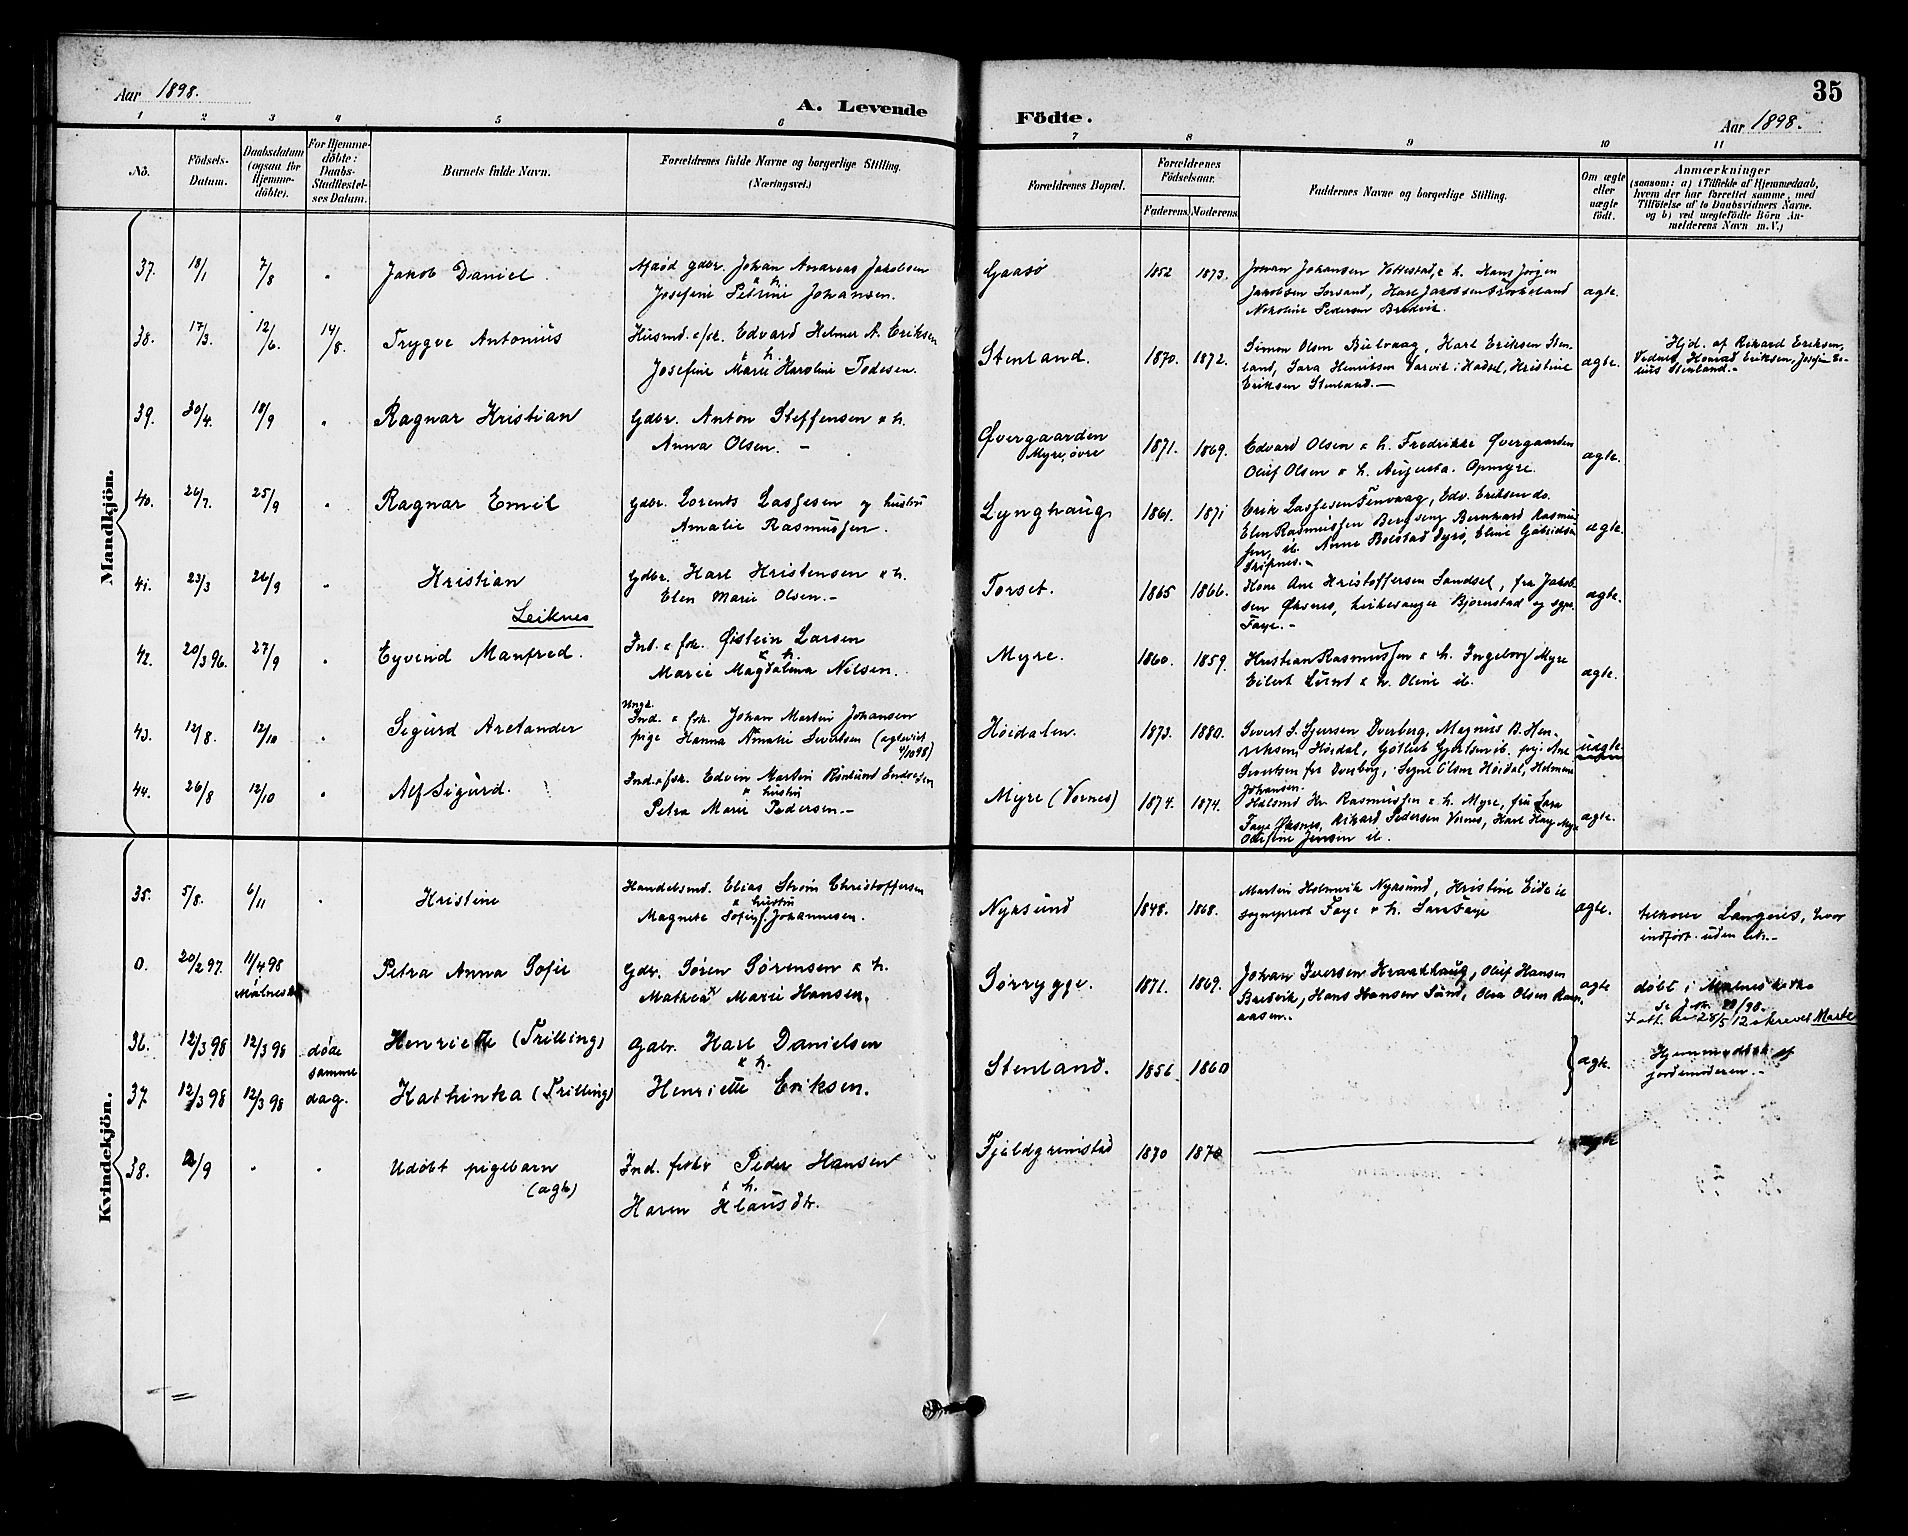 Aar 1898.
A. Levende
Födte.
35
Aar 1898.
1 2 3 4 5 6 7 8 9 10 11
No.
Födsels-
Datum.
Daabsdatum
(ogsaa for
Hjemme-
döbte).
For Hjemme-
döbte:
Daabs-
Stadfæstel-
ses Datum.
Barnets fulde Navn.
Forældrenes fulde Navne og borgerlige Stilling.
(Næringsvei.)
Forældrenes Bopæl.
Forældrenes
Födselsaar.
Faderens Moderens
Faddernes Navne og borgerlige Stilling.
Om ægte
eller
uægte
födt.
Anmærkninger
(saasom: a) i Tilfælde af Hjemmedaab,
hvem der har forrettet samme, med
Tilföielse af to Daabsvidners Navne.
og b) ved uægtefödte Börn An-
melderens Navn m. V.)
Mandkjön.
37. 18/1 7/8 " Jakob Daniel
Afdöd gdbr. Johan Andreas Jakobsen
& h.
Josefine Petrine Johansen.
Gaasø 1852 1873.
Johan Johansen Vottestad, & h. Hans Jørgen
Jakobsen Sorsand, Karl Jakobsen
Nikoline Pedersen Bredvik.
ægte.
38. 17/3. 12/6. 14/8. Trygve Antonius
Husmd. & fsk. Edvard Helmer A. Eriksen
& h.
Josefine Marie Karoline Todesen.
Stenland. 1870. 1872.
Simon Olsen Bielvaag, Karl Eriksen Sten-
land, Sara Henriksen Varvik i Hadsel, Kristine
Eriksen Stenland.—
ægte.
Hjd. af Rikard Eriksen,
Vidner Konrad Eriksen, Josefine
Stenland.-
39. 30/4. 18/9 " Ragnar Kristian
Gdbr. Anton Steffensen & h.
Anna Olsen. —
Øvergaarden
Myre, øvre
1871. 1869.
Edvard Olsen & h. Fredrikke Øvergaarden
Oluf Olsen & h. Augusta. Opmyre.
ægte.
40. 26/7. 25/9 " Ragnar Emil
Gdbr. Lorents Lassesen og hustru
Amalie Rasmussen.
Lynghaug 1861. 1871
Erik Lassesen Finvaag, Edv. Eriksen do.
Elen Rasmussen Bergseng Bernhard Rasmus-
sen, ib. Anne Bolstad Dyrø, Eline Gabrielsen
ægte.
41. 23/3 26/9 " Kristian
Leiknes
Gdbr. Karl Kristensen & h.
Elen Marie Olsen.-
Torset. 1865 1866.
Kone Ane Kristoffersen Sandset, fru Jakob-
sen Øksnes, kirkesanger Bjørnstad og sgpr.
Faye.-
ægte.
42. 20/3 96. 27/9 " Eyvind Manfred.
Ind. & fsk. Øistein Larsen
& h.
Marie Magdalena Nilsen.
Myre. 1860. 1859.
Kristian Rasmussen & h. Ingeborg Myre
Eilert Lund & h. Oline ib.
ægte.
43. 12/8. 12/10 " Sigurd Aretander
Ungk.
Ind. & fsk. Johan Martin Johansen
pige Hanna Amalie Sivertsen (ægteviet
4/10 98)
Høidalen. 1873. 1880.
Sivert S. Sjursen Dverberg, Magnus B. Hen-
riksen, Höidal, Gotlieb Gjertsen ib. pig. Ane
Sivertsen fra Dverberg, Signe Olsen Höidal, Helmine
Johansen.
uægte
44. 26/8 12/10 " Alf Sigurd.
Ind. & fsk. Edvin Martin Röslund Endresen
& hustru
Petra Marie Pedersen.—
Myre (Vornes) 1874. 1874.
Husmd Kr. Rasmussen & h. Myre, fru Sara
Faye Øksnes, Rikard Pedersen Vornes, Karl Hay Myre
Josefine Jensen ib.
ægte.
Kvindekjön.
35. 5/8. 6/11 " Kristine
Handelsmd. Elias Strøm Christoffersen
& hustru
Magnete Sofie Johannesen.
Nyksund 1848. 1868.
Martin Holmvik Nyksund, Kristine Eide ib
sogneprest Faye & h. Sara Faye
ægte.
tilhører Langenes, hvor
indført uden No.-
0. 20/2 97. 11/4 98
Malnes
Petra Anna Sofie
Gdr. Sören Sörensen & h.
Mathea Marie Hansen.
Sørrygge. 1871. 1869.
Johan Iversen Kraakhaug, Oluf Hansen
Bredvik, Hans Hansen Sund, Olea Olsen Ram-
aasen..
ægte
døbt i Malnes kirke
28/5 12 skrevet Marte
36. 12/3 98 12/3 98 døde
samme
Henriette (Trilling)
Gdbr. Karl Danielsen
& h.
Stenland. 1856 1860
ægte.
Hjemmedøbt af
jordemoderen.-
37. 12/3 98 12/3 98 dag. Kathinka (Trilling)
Henriette Eriksen.
38. 2/9 " " Udøbt pigebarn
(ægte)
Ind. fisker Peder Hansen
& h.
Karen Klausdtr.
Fjeldgrimstad 1870 1870
ægte